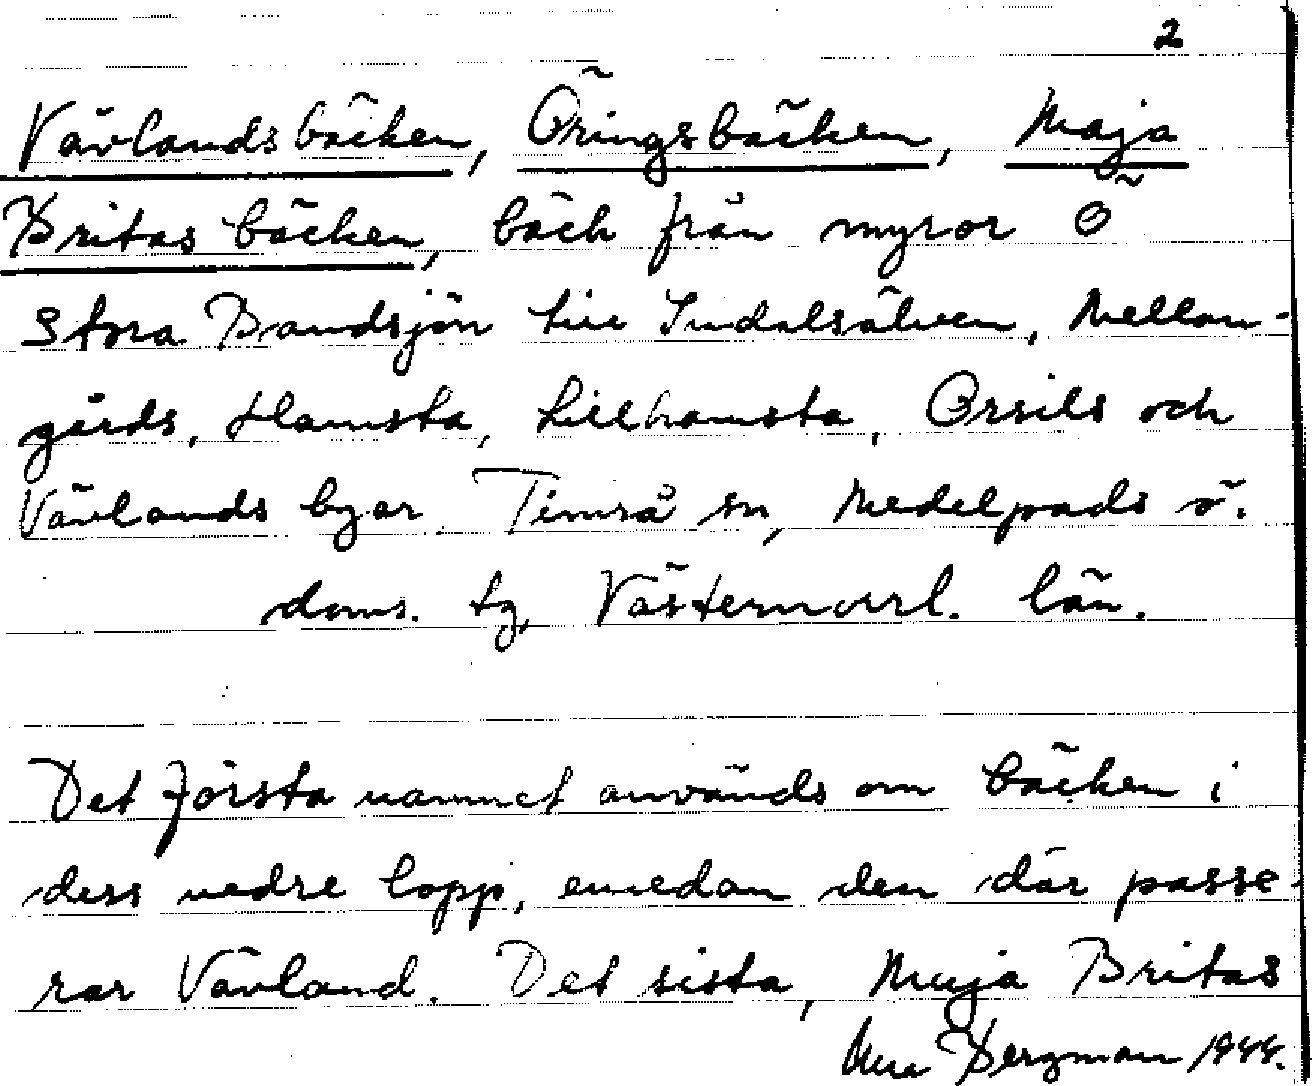 2
Vävlandsbäcken, Öringsbäcken, Maja
Britas bäcken, bäck från myror Ö
Stora Bandsjön till Indalsälven, Mellan-
gårds, Hamsta, Lillhamsta, Orsils och
Vävlands byar Timrå sn, Medelpads ö.
doms. tg, Västernorrl. län.
Det första namnet används om bäcken i
dess nedre lopp, emedan den där passe-
rar Vävland. Det sista, Maja Britas
Bergman 1944.